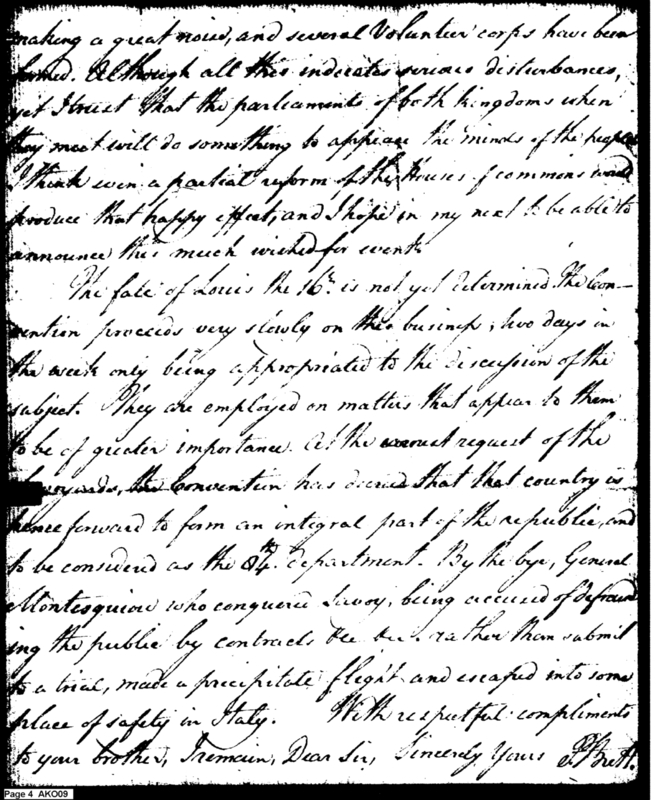 making a great noise, and several Volunteer corps have been
formed. Although all this indicates serious disturbances,
yet I trust that the parliaments of both kingdoms when
they meet will do something to appease the minds of the people
I think even a partial reform of the Houses of commons would
produce that happy effect, and I hope in my next to be able to
announce this much wished for event.
The fate of Louis the 16th. is not yet determined. The Con-
vention proceeds very slowly on this business, two days in
the week only being appropriated to the discussion of the
subject. They are employed on matters that appear to them
to be of greater importance. At the request of the
the Convention has decreed that that country is
hence forward to form an integral part of the republic, and
to be considered as the 84th. department. By the bye, General
Montesquiou who conquered Savoy, being accused of defraud
ing the public by contracts &c &c. rather than submit
to a trial, made a precipitate flight and escaped into some
place of safety in Italy. With respectful compliments
to your brother, I remain, Dear Sir, Sincerely Yours
Page 4 AKO09